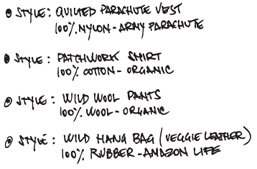 STYLE: QUILTED PARACHUTE VEST
100% NYLON-ARMY PARACHUTE
STYLE: PATCHWORK SHIRT
100% COTTON-ORGANIC
STYLE: WILD WOOL PANTS
100% WOOL-ORGANIC
STYLE: WILD HANG BAG (VEGGIE LEATHER)
100% RUBBER-AMAZON LIFE